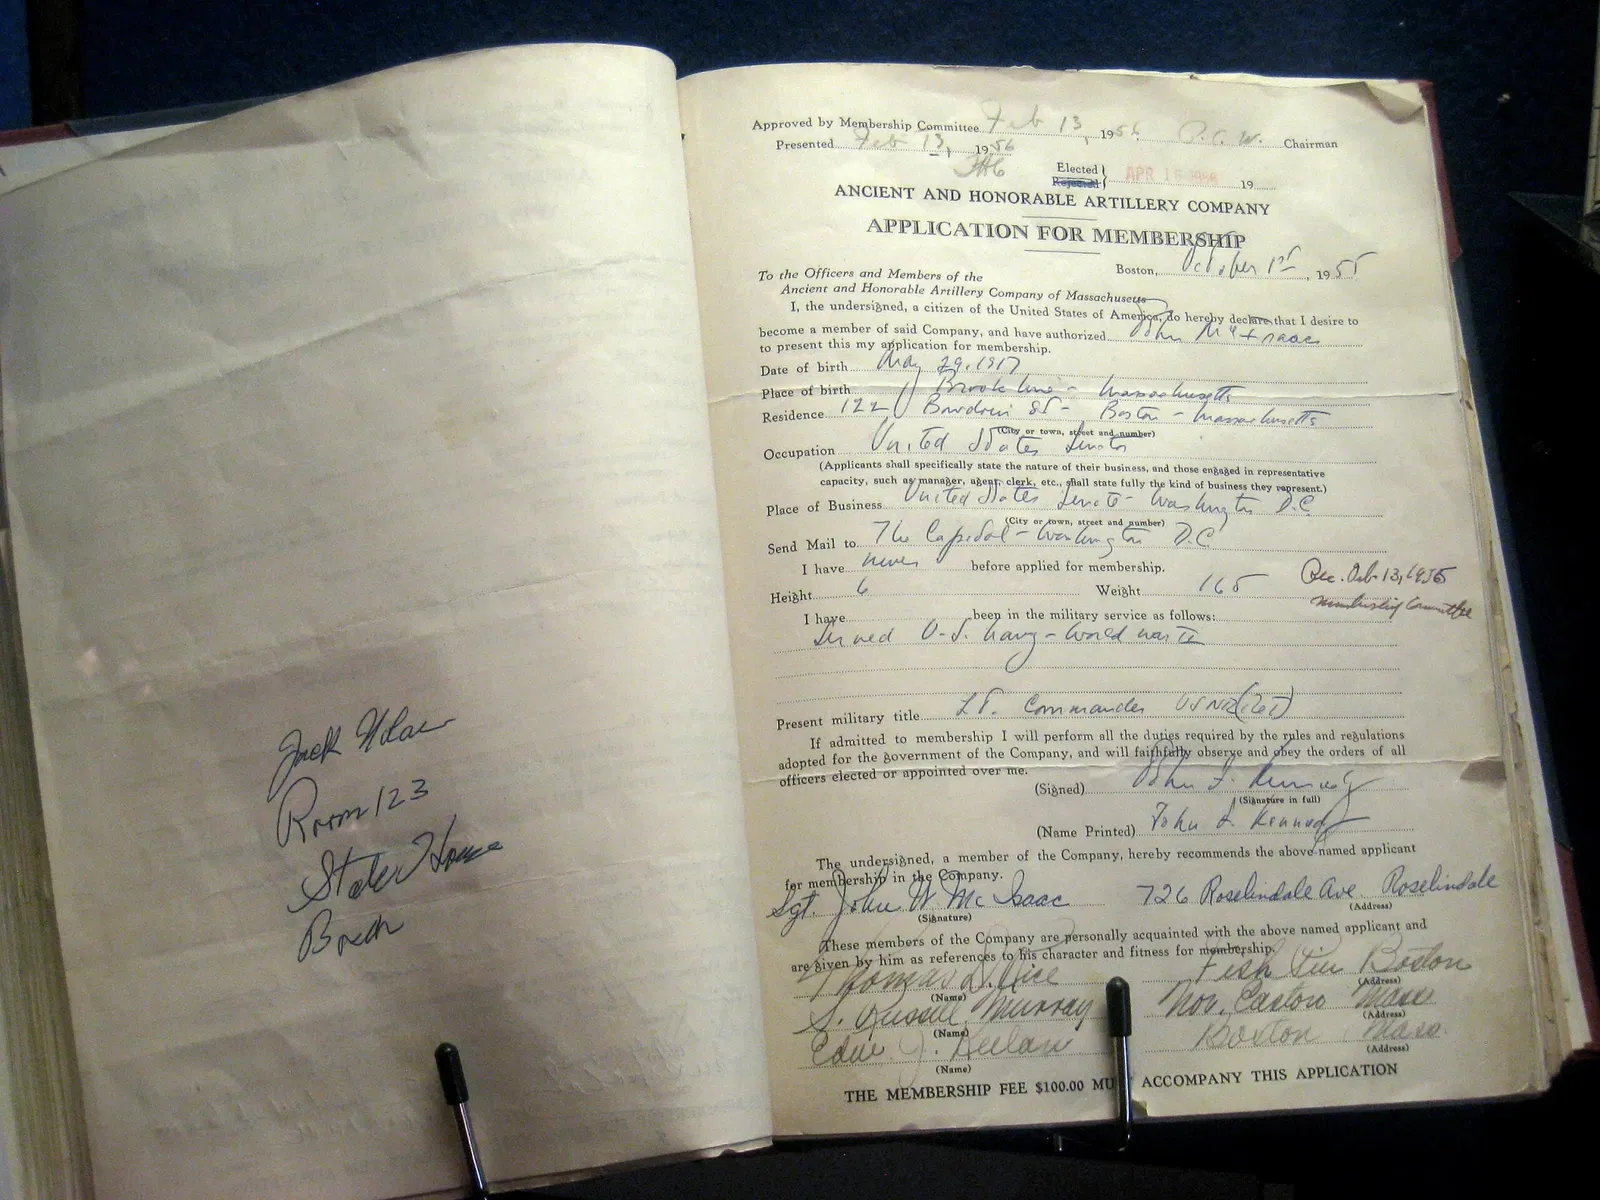 Jack
Room 123
State House
Approved by Membership Committee Feb 13, 1956. P.C.W. Chairman
Presented Feb 13, 1956
Elected
Rejected } APR 16 19
ANCIENT AND HONORABLE ARTILLERY COMPANY
APPLICATION FOR MEMBERSHIP
Boston, October 1st, 1955
To the Officers and Members of the
Ancient and Honorable Artillery Company of Massachusetts
I, the undersigned, a citizen of the United States of America, do hereby declare that I desire to
become a member of said Company, and have authorized John McIsaac
to present this my application for membership.
Date of birth May 29, 1917
Place of birth Brookline - Massachusetts
Residence 122 Bowdoin St - Boston - Massachusetts
(City or town, street and number)
Occupation United States Senator
(Applicants shall specifically state the nature of their business, and those engaged in representative
capacity, such as manager, agent, clerk, etc., shall state fully the kind of business they represent.)
Place of Business United States Senate - Washington D.C.
(City or town, street and number)
Send Mail to The Capitol - Washington D.C.
I have never before applied for membership.
Height 6 Weight 165
Rec. Oct. 13, 1955
Membership Committee
I have been in the military service as follows:
Served U.S. Navy - World War II
Present military title Lt. Commander USNR (Ret)
If admitted to membership I will perform all the duties required by the rules and regulations
adopted for the government of the Company, and will faithfully observe and obey the orders of all
officers elected or appointed over me.
(Signed) John F. Kennedy
(Signature in full)
(Name Printed) John F. Kennedy
The undersigned, a member of the Company, hereby recommends the above named applicant
for membership in the Company.
Sgt. John W. McIsaac 726 Roselindale Ave. Roselindale
(Signature) (Address)
These members of the Company are personally acquainted with the above named applicant and
are given by him as references to his character and fitness for membership.
Thomas D. Rice Fish Pier Boston
(Name) (Address)
S. Russell Murray No. Easton Mass
(Name) (Address)
J. Boston Mass.
(Name) (Address)
THE MEMBERSHIP FEE $100.00 MUST ACCOMPANY THIS APPLICATION